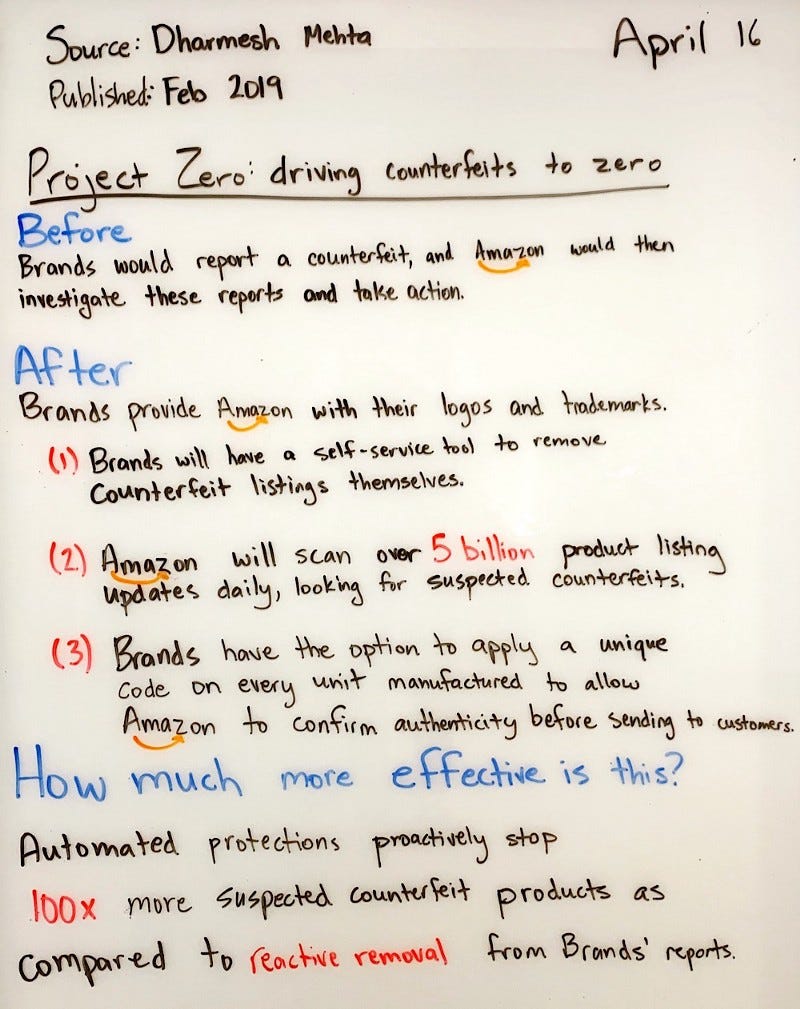 Source: Dharmesh Mehta
April 16
Published: Feb 2019
Project Zero: driving counterfeits to zero
Before
Brands would report a counterfeit, and Amazon would then
investigate these reports and take action.
After
Brands provide Amazon with their logos and trademarks.
(1) Brands will have a self-service tool to remove
counterfeit listings themselves.
(2) Amazon will scan over 5 billion product listing
updates daily, looking for suspected counterfeits.
(3) Brands have the option to apply a unique
code on every unit manufactured to allow
Amazon to confirm authenticity before sending to customers.
How much more effective is this?
Automated protections proactively stop
100x more suspected counterfeit products as
compared to reactive removal from Brands' reports.